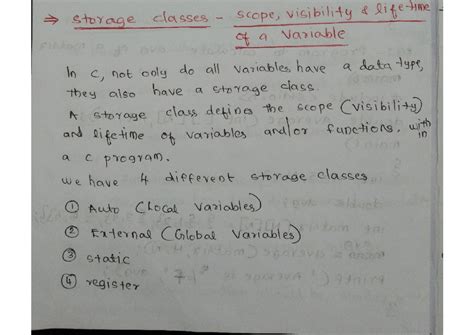 ⇒ storage classes - scope, visibility & life-time
of a variable
In C, not only do all variables have a data type,
they also have a storage class.
A storage class defines the scope (visibility)
and lifetime of variables and/or functions. with
in
a C program.
we have 4 different storage classes
① Auto (Local Variables)
② External (Global Variables)
③ static
④ register